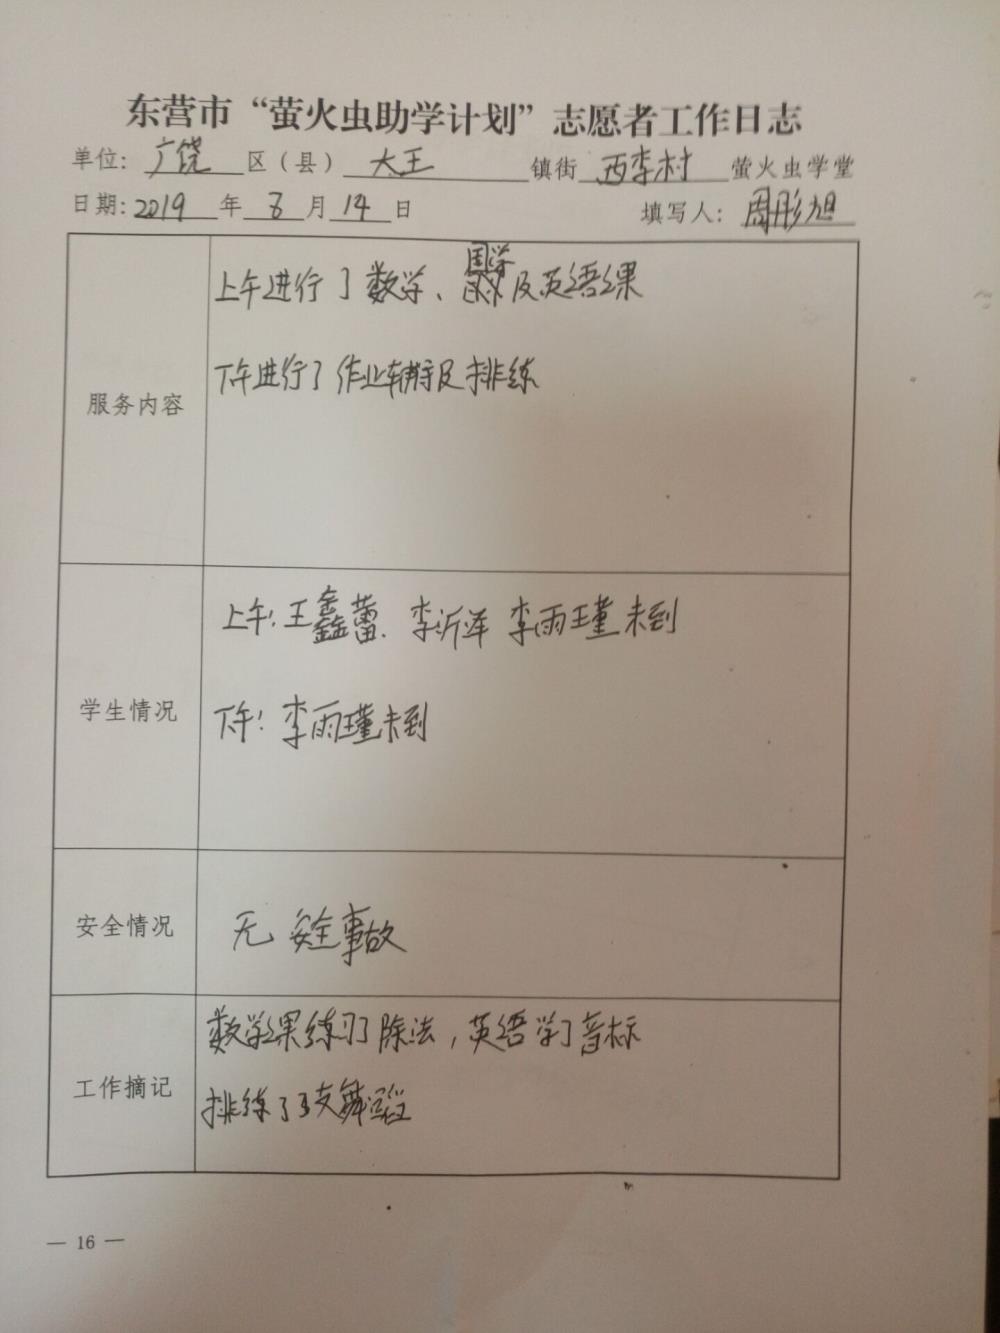 东营市“萤火虫助学计划”志愿者工作日志
单位: 广饶 区（县） 大王 镇街 西李村 萤火虫学堂
日期: 2019 年 8 月 14 日 填写人: 周彤旭
服务内容
上午进行了数学、国学及英语课
下午进行了作业辅导及排练
学生情况
上午: 王鑫蕾. 李沂泽 李雨瑾未到
下午: 李雨瑾未到
安全情况
无 安全事故
工作摘记
数学课练习了除法, 英语学了音标
排练了支舞蹈
— 16 —